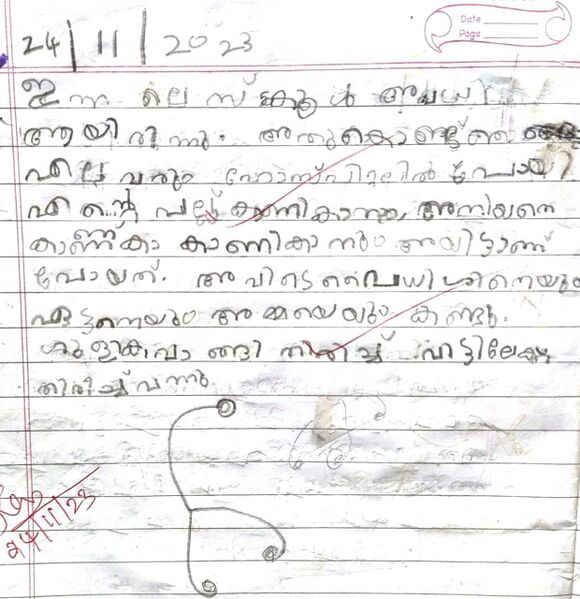 Date
Page
24/11/2023
ഇന്നലെ സ്ക്കൂൾ അവധി
ആയിരുന്നു. അതുകൊണ്ട് ഞ
എല്ലവരും ഹോസ്പിറ്റലിൽ പോയി
എന്റെ പല്ല് കാണികാനും അനിയനെ
കാണികാനും അയിട്ടാണ്
പോയത്. അവിടെ വൈധിശിനെയും
ഏട്ടനെയും അമ്മയെയും കണ്ടു.
ഗുളികവാങ്ങി തിരിച്ച് വിട്ടിലേക്കു
തിരിച്ച് വന്നു
24/11/23